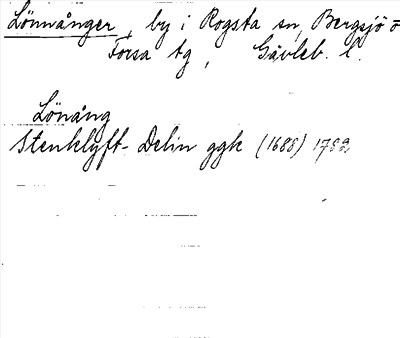 Lönnånger, by i Rogsta sn, Bergsjö o
Forsa tg, Gävleb. l.
Lönång
Stenklyft- Delin ggk (1688) 1789